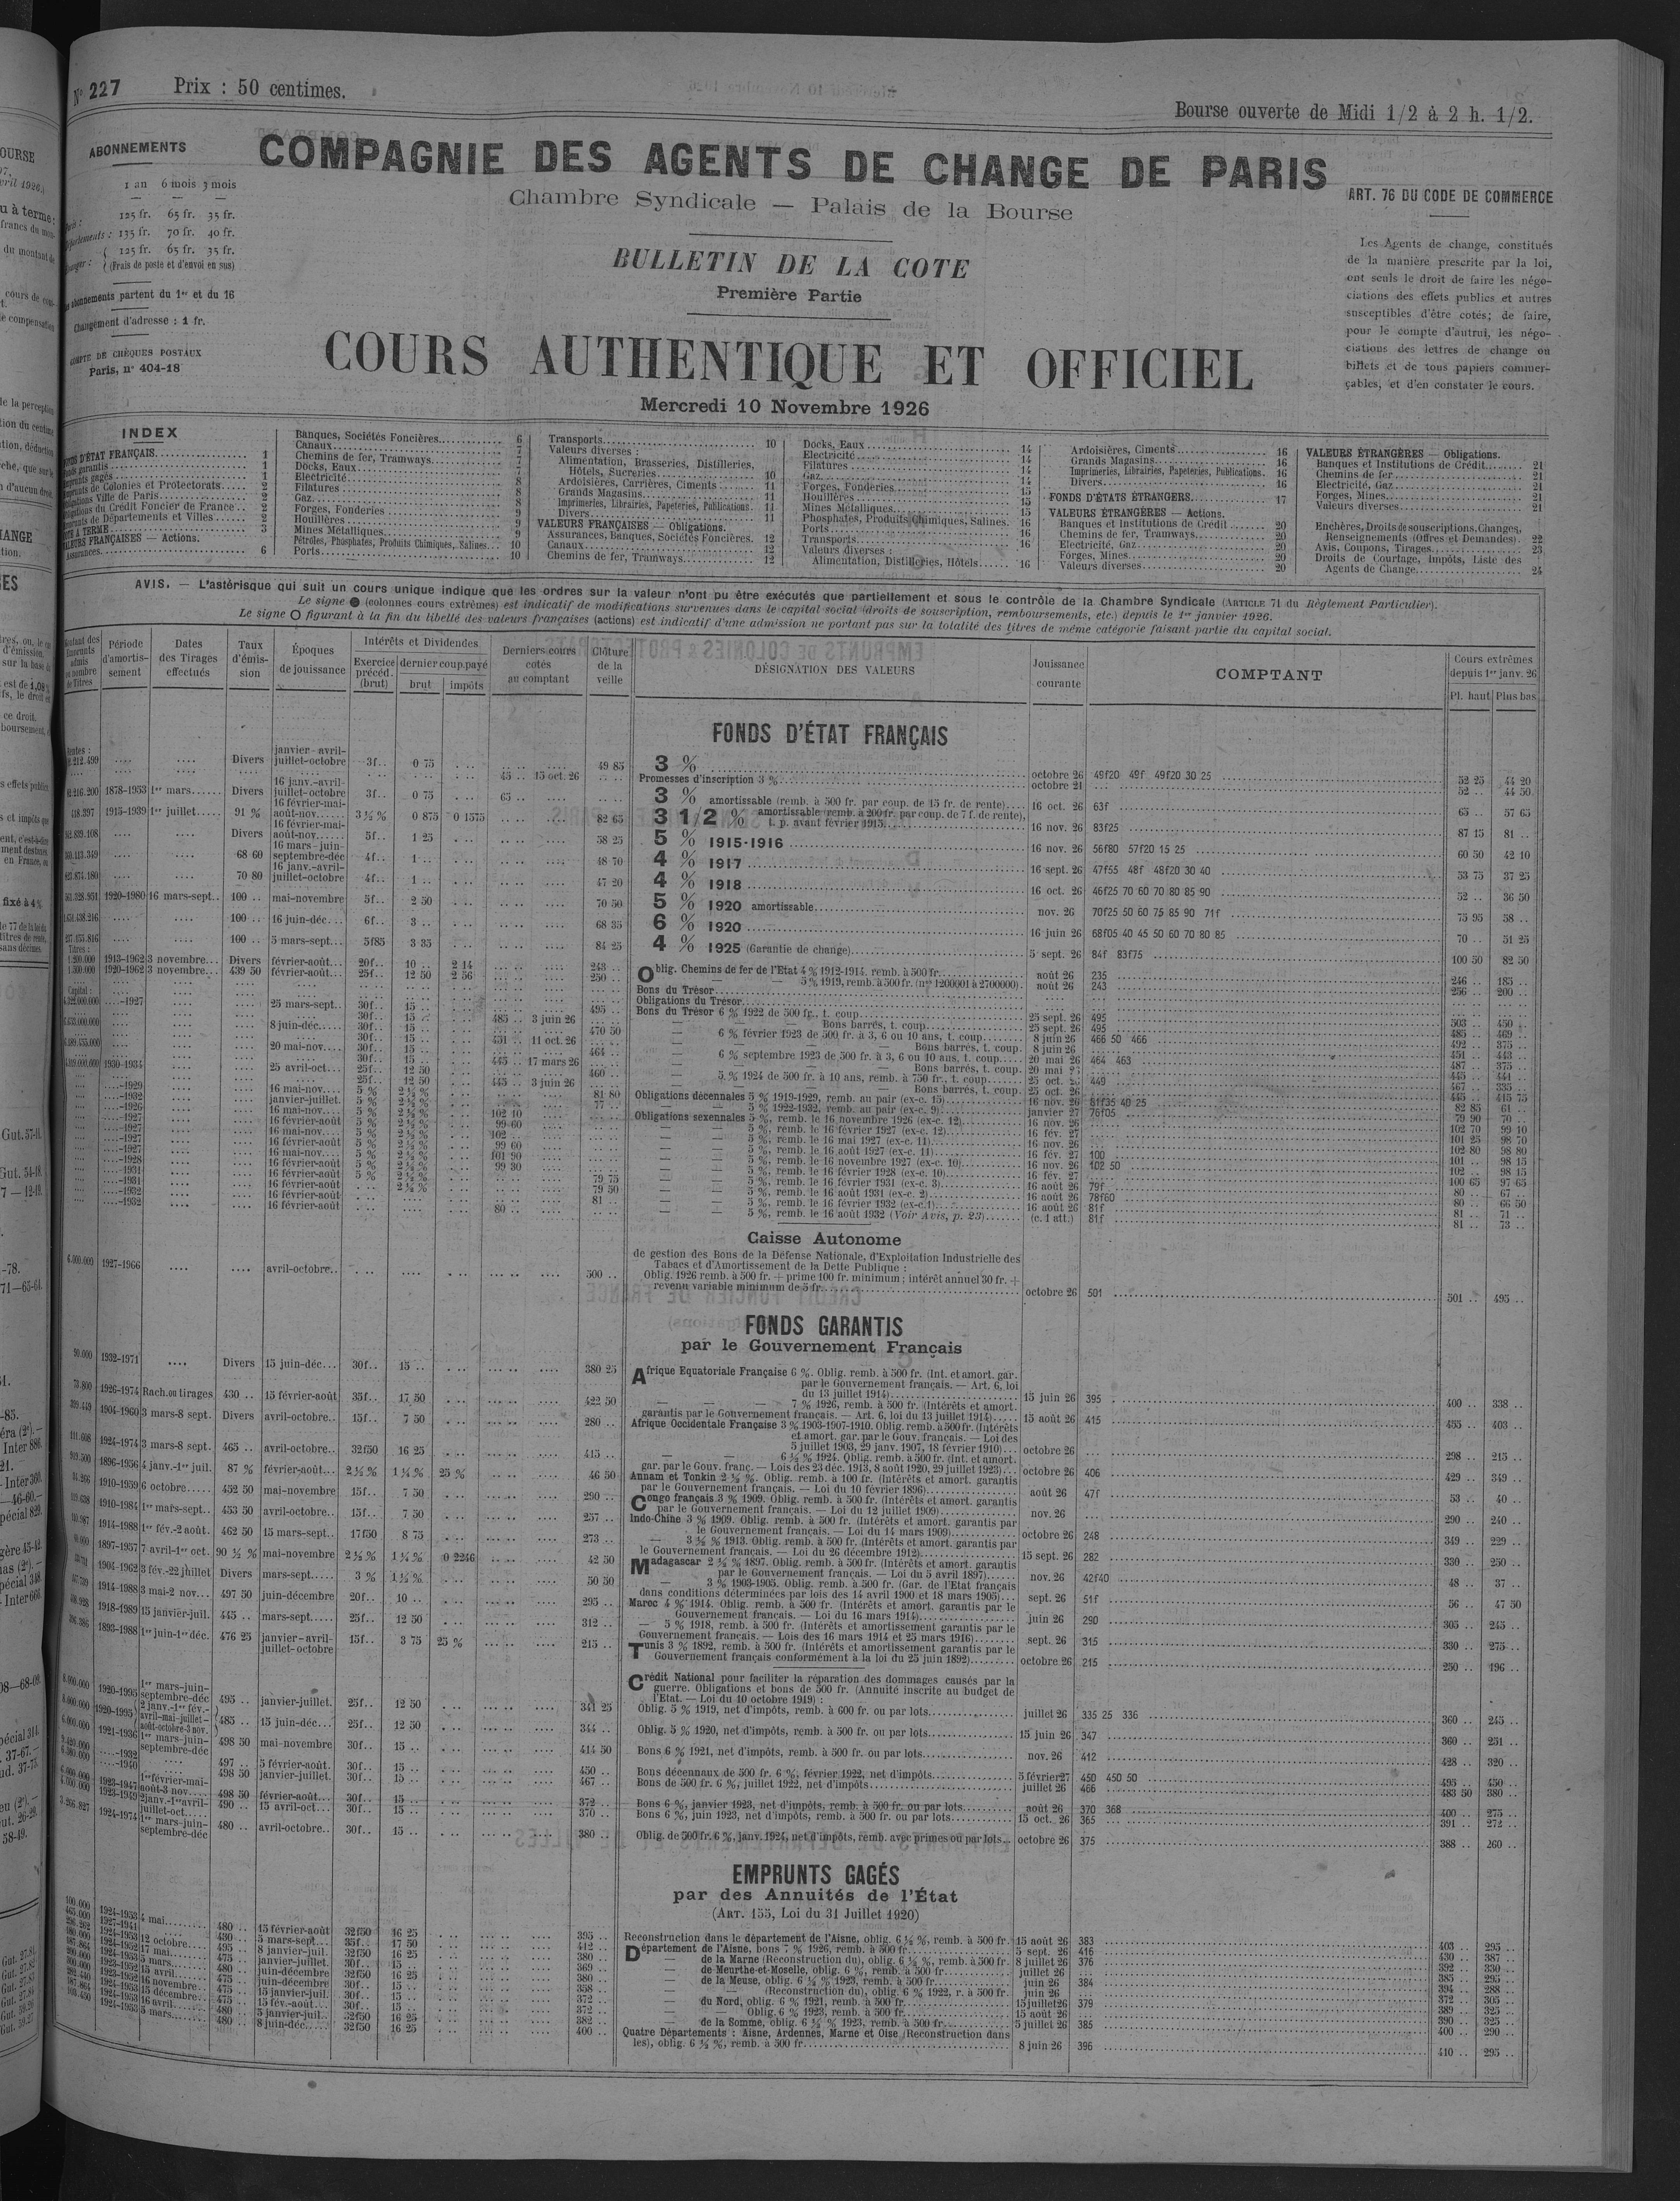 N° 227 Prix : 50 centimes.
Bourse ouverte de Midi 1/2 à 2 h. 1/2.
ABONNEMENTS
1 an 6 mois 3 mois
125 fr. 65 fr. 35 fr.
135 fr. 70 fr. 40 fr.
125 fr. 65 fr. 35 fr.
(Frais de poste et d'envoi en sus)
partent du 1er et du 16
Changement d'adresse : 1 fr.
COMPTE DE CHÈQUES POSTAUX
Paris, n° 404-18
COMPAGNIE DES AGENTS DE CHANGE DE PARIS
Chambre Syndicale — Palais de la Bourse
BULLETIN DE LA COTE
Première Partie
COURS AUTHENTIQUE ET OFFICIEL
Mercredi 10 Novembre 1926
ART. 76 DU CODE DE COMMERCE
Les Agents de change, constitués
de la manière prescrite par la loi,
ont seuls le droit de faire les négo-
ciations des effets publics et autres
susceptibles d'être cotés; de faire,
pour le compte d'autrui, les négo-
ciations des lettres de change ou
billets et de tous papiers commer-
çables, et d'en constater le cours.
INDEX
FONDS D'ÉTAT FRANÇAIS 1
Fonds garantis 1
Emprunts gagés 1
Emprunts de Colonies et Protectorats 2
Obligations Ville de Paris 2
Obligations du Crédit Foncier de France 2
Emprunts de Départements et Villes 2
COTE A TERME 3
VALEURS FRANÇAISES — Actions.
Assurances 6
Banques, Sociétés Foncières 6
Canaux 7
Chemins de fer, Tramways 7
Docks, Eaux 7
Electricité 8
Filatures 8
Gaz 8
Forges, Fonderies 9
Houillères 9
Mines Métalliques 9
Pétroles, Phosphates, Produits Chimiques, Salines 10
Ports 10
Transports 10
Valeurs diverses :
Alimentation, Brasseries, Distilleries,
Hôtels, Sucreries 10
Ardoisières, Carrières, Ciments 11
Grands Magasins 11
Imprimeries, Librairies, Papeteries, Publications 11
Divers 11
VALEURS FRANÇAISES — Obligations.
Assurances, Banques, Sociétés Foncières 12
Canaux 12
Chemins de fer, Tramways 12
Docks, Eaux 14
Electricité 14
Filatures 14
Gaz 14
Forges, Fonderies 15
Houillères 15
Mines Métalliques 15
Phosphates, Produits Chimiques, Salines 16
Ports 16
Transports 16
Valeurs diverses :
Alimentation, Distilleries, Hôtels 16
Ardoisières, Ciments 16
Grands Magasins 16
Imprimeries, Librairies, Papeteries, Publications 16
Divers 16
FONDS D'ÉTATS ÉTRANGERS 17
VALEURS ÉTRANGÈRES — Actions.
Banques et Institutions de Crédit 20
Chemins de fer, Tramways 20
Electricité, Gaz 20
Forges, Mines 20
Valeurs diverses 20
VALEURS ÉTRANGÈRES — Obligations.
Banques et Institutions de Crédit 21
Chemins de fer 21
Electricité, Gaz 21
Forges, Mines 21
Valeurs diverses 21
Enchères, Droits de souscriptions, Changes,
Renseignements (Offres et Demandes) 22
Avis, Coupons, Tirages 23
Droits de Courtage, Impôts, Liste des
Agents de Change 24
AVIS. — L'astérisque qui suit un cours unique indique que les ordres sur la valeur n'ont pu être exécutés que partiellement et sous le contrôle de la Chambre Syndicale (ARTICLE 71 du Règlement Particulier).
Le signe ● (colonnes cours extrêmes) est indicatif de modifications survenues dans le capital social (droits de souscription, remboursements, etc.) depuis le 1er janvier 1926.
Le signe O figurant à la fin du libellé des valeurs françaises (actions) est indicatif d'une admission ne portant pas sur la totalité des titres de même catégorie faisant partie du capital social.
Période d'amortis-sement
Dates des Tirages effectués
Taux d'émis-sion
Époques de jouissance
Intérêts et Dividendes
Exercice précéd. (brut)
dernier coup. payé
brut impôts
Derniers cours cotés au comptant
Clôture de la veille
DÉSIGNATION DES VALEURS
Jouissance courante
COMPTANT
Cours extrêmes depuis 1er janv. 26
Pl. haut Plus bas
FONDS D'ÉTAT FRANÇAIS
Divers janvier-avril-juillet-octobre 3f.. 0 75 49 85 3 % octobre 26 49f20 49f 49f20 30 25 52 25 44 20
45 .. 15 oct. 26 Promesses d'inscription 3 % octobre 21 52 .. 44 50
1878-1953 1er mars Divers 16 janv.-avril-juillet-octobre 3f.. 0 75 65 .. 3 % amortissable (remb. à 500 fr. par coup. de 15 fr. de rente) 16 oct. 26 63f 65 .. 57 65
1915-1939 1er juillet 91 % 16 février-mai-août-nov. 3 ½ % 0 875 0 1575 82 65 3 1/2 % amortissable (remb. à 200 fr. par coup. de 7 f. de rente), t. p. avant février 1915 16 nov. 26 83f25 87 15 81 ..
Divers 16 février-mai-août-nov. 5f.. 1 25 58 25 5 % 1915-1916 16 nov. 26 56f80 57f20 15 25 60 50 42 10
68 60 16 mars-juin-septembre-déc 4f.. 1 .. 48 70 4 % 1917 16 sept. 26 47f55 48f 48f20 30 40 53 75 37 25
70 80 16 janv.-avril-juillet-octobre 4f.. 1 .. 47 20 4 % 1918 16 oct. 26 46f25 70 60 70 80 85 90 52 .. 36 50
1920-1980 16 mars-sept. 100 .. mai-novembre 5f.. 2 50 70 50 5 % 1920 amortissable nov. 26 70f25 50 60 75 85 90 71f 75 95 58 ..
100 .. 16 juin-déc. 6f.. 3 .. 68 35 6 % 1920 16 juin 26 68f05 40 45 50 60 70 80 85 70 .. 51 25
100 .. 5 mars-sept. 5f85 3 35 84 25 4 % 1925 (Garantie de change) 5 sept. 26 84f 83f75 100 50 82 50
1913-1962 3 novembre Divers février-août 20f.. 10 .. 2 14 243 .. Oblig. Chemins de fer de l'Etat 4 % 1912-1914, remb. à 500 fr. août 26 235 246 .. 185 ..
1920-1962 3 novembre 439 50 février-août 25f.. 12 50 2 56 250 .. — 5 % 1919, remb. à 500 fr. (nos 1200001 à 2700000) août 26 243 256 .. 200 ..
Bons du Trésor
Obligations du Trésor
25 mars-sept. 30f.. 15 .. 495 .. Bons du Trésor 6 % 1922 de 500 fr., t. coup. 25 sept. 26 495 503 .. 450 ..
30f.. 15 .. 485 .. 3 juin 26 — Bons barrés, t. coup. 25 sept. 26 495 485 .. 469 ..
8 juin-déc. 30f.. 15 .. 470 50 — 6 % février 1923 de 500 fr. à 3, 6 ou 10 ans, t. coup. 8 juin 26 466 50 466 492 .. 375 ..
30f.. 15 .. 451 .. 11 oct. 26 — Bons barrés, t. coup. 8 juin 26 451 .. 443 ..
20 mai-nov. 30f.. 15 .. 464 .. — 6 % septembre 1923 de 500 fr. à 3, 6 ou 10 ans, t. coup. 20 mai 26 464 463 487 .. 375 ..
30f.. 15 .. 445 .. 17 mars 26 — Bons barrés, t. coup. 445 .. 441 ..
1930-1934 25 avril-oct. 25f.. 12 50 460 .. — 5 % 1924 de 500 fr. à 10 ans, remb. à 750 fr., t. coup. 25 oct. 26 449 467 .. 335 ..
25f.. 12 50 445 .. 3 juin 26 — Bons barrés, t. coup. 25 oct. 26 445 .. 415 75
-1929 16 mai-nov. 5 % 2 ½ % 81 80 Obligations décennales 5 % 1919-1929, remb. au pair (ex-c. 15) 16 nov. 26 81f35 40 25 82 85 61 ..
-1932 janvier-juillet. 5 % 2 ½ % 77 .. — 5 % 1922-1932, remb. au pair (ex-c. 9) janvier 27 76f05 79 90 70 ..
-1926 16 mai-nov. 5 % 2 ½ % 102 10 Obligations sexennales 5 %, remb. le 16 novembre 1926 (ex-c. 12) 16 nov. 26 102 70 99 10
-1927 16 février-août 5 % 2 ½ % 99 60 — 5 %, remb. le 16 février 1927 (ex-c. 12) 16 fév. 27 101 25 98 70
-1927 16 mai-nov. 5 % 2 ½ % 102 .. — 5 %, remb. le 16 mai 1927 (ex-c. 11) 16 nov. 26 102 80 98 80
-1927 16 février-août 5 % 2 ½ % 99 60 — 5 %, remb. le 16 août 1927 (ex-c. 11) 16 fév. 27 100 101 .. 98 15
-1927 16 mai-nov. 5 % 2 ½ % 101 90 — 5 %, remb. le 16 novembre 1927 (ex-c. 10) 16 nov. 26 102 50 102 .. 98 15
-1928 16 février-août 5 % 2 ½ % 99 30 — 5 %, remb. le 16 février 1928 (ex-c. 10) 16 fév. 27 100 65 97 65
-1931 16 février-août 5 % 2 ½ % 79 75 — 5 %, remb. le 16 février 1931 (ex-c. 3) 16 août 26 79f 80 .. 67 ..
-1931 16 février-août 79 50 — 5 %, remb. le 16 août 1931 (ex-c. 2) 16 août 26 78f60 80 .. 66 50
-1932 16 février-août 81 .. — 5 %, remb. le 16 février 1932 (ex-c. 1) 16 août 26 81f 81 .. 71 ..
-1932 16 février-août 80 .. — 5 %, remb. le 16 août 1932 (Voir Avis, p. 23) (c. 1 att.) 81f 81 .. 73 ..
Caisse Autonome
de gestion des Bons de la Défense Nationale, d'Exploitation Industrielle des
Tabacs et d'Amortissement de la Dette Publique :
6.000.000 1927-1966 avril-octobre 500 .. Oblig. 1926 remb. à 500 fr. + prime 100 fr. minimum; intérêt annuel 30 fr. +
revenu variable minimum de 5 fr. octobre 26 501 501 .. 495 ..
FONDS GARANTIS
par le Gouvernement Français
90.000 1932-1971 Divers 15 juin-déc. 30f.. 15 .. 380 25 Afrique Equatoriale Française 6 %. Oblig. remb. à 500 fr. (Int. et amort. gar.
par le Gouvernement français. — Art. 6, loi
du 13 juillet 1914) 15 juin 26 395 400 .. 338 ..
1926-1974 Rach. ou tirages 430 .. 15 février-août 35f.. 17 50 422 50 — 7 % 1926, remb. à 500 fr. (Intérêts et amort.
garantis par le Gouvernement français. — Art. 6, loi du 13 juillet 1914) 15 août 26 415 455 .. 403 ..
1904-1960 3 mars-8 sept. Divers avril-octobre 15f.. 7 50 280 .. Afrique Occidentale Française 3 % 1903-1907-1910. Oblig. remb. à 500 fr. (Intérêts
et amort. gar. par le Gouv. français. — Lois des
5 juillet 1903, 29 janv. 1907, 18 février 1910) octobre 26 298 .. 215 ..
1924-1974 3 mars-8 sept. 465 .. avril-octobre 32f50 16 25 415 .. — 6 ½ % 1924. Oblig. remb. à 500 fr. (Int. et amort.
gar. par le Gouv. franç. — Lois des 23 déc. 1913, 8 août 1920, 29 juillet 1923) octobre 26 406 429 .. 349 ..
1896-1956 4 janv.-1er juil. 87 % février-août 2 ½ % 1 ¼ % 25 % 46 50 Annam et Tonkin 2 ½ %. Oblig. remb. à 100 fr. (Intérêts et amort. garantis
par le Gouvernement français. — Loi du 10 février 1896) août 26 47f 53 .. 40 ..
1910-1959 6 octobre 452 50 mai-novembre 15f.. 7 50 290 .. Congo français 3 % 1909. Oblig. remb. à 500 fr. (Intérêts et amort. garantis
par le Gouvernement français. — Loi du 12 juillet 1909) nov. 26 290 .. 240 ..
1910-1984 1er mars-sept. 453 50 avril-octobre 15f.. 7 50 257 .. Indo-Chine 3 % 1909. Oblig. remb. à 500 fr. (Intérêts et amort. garantis par
le Gouvernement français. — Loi du 14 mars 1909) octobre 26 248 349 .. 229 ..
1914-1988 1er fév.-2 août 462 50 15 mars-sept. 17f50 8 75 273 .. — 3 ½ % 1913. Oblig. remb. à 500 fr. (Intérêts et amort. garantis par
le Gouvernement français. — Loi du 26 décembre 1912) 15 sept. 26 282 330 .. 250 ..
1897-1957 7 avril-1er oct. 90 ½ % mai-novembre 2 ½ % 1 ¼ % 0 2246 42 50 Madagascar 2 ½ % 1897. Oblig. remb. à 500 fr. (Intérêts et amort. garantis
par le Gouvernement français. — Loi du 5 avril 1897) nov. 26 42f40 48 .. 37 ..
1904-1962 3 fév.-22 juillet Divers mars-sept. 3 % 1 ½ % 50 50 — 3 % 1903-1905. Oblig. remb. à 500 fr. (Gar. de l'Etat français
dans conditions déterminées par lois des 14 avril 1900 et 18 mars 1905) sept. 26 51f 56 .. 47 50
1914-1988 3 mai-2 nov. 497 50 juin-décembre 20f.. 10 .. 295 .. Maroc 4 % 1914. Oblig. remb. à 500 fr. (Intérêts et amort. garantis par le
Gouvernement français. — Loi du 16 mars 1914) juin 26 290 305 .. 245 ..
1918-1989 15 janvier-juil. 445 .. mars-sept. 25f.. 12 50 312 .. — 5 % 1918, remb. à 500 fr. (Intérêts et amortissement garantis par le
Gouvernement français. — Lois des 16 mars 1914 et 25 mars 1916) sept. 26 315 330 .. 275 ..
1893-1988 1er juin-1er déc. 476 25 janvier-avril-juillet-octobre 15f.. 3 75 25 % 215 .. Tunis 3 % 1892, remb. à 500 fr. (Intérêts et amortissement garantis par le
Gouvernement français conformément à la loi du 25 juin 1892) octobre 26 215 250 .. 196 ..
Crédit National pour faciliter la réparation des dommages causés par la
guerre. Obligations et bons de 500 fr. (Annuité inscrite au budget de
l'Etat. — Loi du 10 octobre 1919) :
1920-1995 1er mars-juin-septembre-déc 495 .. janvier-juillet. 25f.. 12 50 341 25 Oblig. 5 % 1919, net d'impôts, remb. à 600 fr. ou par lots juillet 26 335 25 336 360 .. 245 ..
1920-1995 2 janv.-1er fév.-avril-mai-juillet-août-octobre-3 nov. 485 .. 15 juin-déc. 25f.. 12 50 344 .. Oblig. 5 % 1920, net d'impôts, remb. à 500 fr. ou par lots 15 juin 26 347 360 .. 251 ..
1921-1936 1er mars-juin-septembre-déc 498 50 mai-novembre 30f.. 15 .. 414 50 Bons 6 % 1921, net d'impôts, remb. à 500 fr. ou par lots nov. 26 412 428 .. 320 ..
-1932 497 .. 5 février-août. 30f.. 15 .. 450 .. Bons décennaux de 500 fr. 6 %, février 1922, net d'impôts 5 février 27 450 450 50 495 .. 450 ..
-1940 498 50 janvier-juillet. 30f.. 15 .. 467 .. Bons de 500 fr. 6 %, juillet 1922, net d'impôts juillet 26 466 483 50 380 ..
1923-1947 1er février-mai-août-3 nov. 498 50 février-août 30f.. 15 .. 372 .. Bons 6 %, janvier 1923, net d'impôts, remb. à 500 fr. ou par lots août 26 370 368 400 .. 275 ..
1923-1949 2 janv.-1er avril-juillet-oct. 490 .. 15 avril-oct. 30f.. 15 .. 370 .. Bons 6 %, juin 1923, net d'impôts, remb. à 500 fr. ou par lots 15 oct. 26 365 391 .. 272 ..
3.296.827 1924-1974 1er mars-juin-septembre-déc 480 .. avril-octobre 30f.. 15 .. 380 .. Oblig. de 500 fr. 6 %, janv. 1924, net d'impôts, remb. avec primes ou par lots octobre 26 375 388 .. 260 ..
EMPRUNTS GAGÉS
par des Annuités de l'État
(ART. 155, Loi du 31 Juillet 1920)
1924-1953 4 mai 480 .. 15 février-août 32f50 16 25 395 .. Reconstruction dans le département de l'Aisne, oblig. 6 ½ %, remb. à 500 fr. 15 août 26 383 403 .. 295 ..
1927-1941 480 .. 5 mars-sept. 35f.. 17 50 412 .. Département de l'Aisne, bons 7 % 1926, remb. à 500 fr. 5 sept. 26 416 430 .. 387 ..
1924-1953 12 octobre 495 .. 8 janvier-juil. 32f50 16 25 380 .. — de la Marne (Reconstruction du), oblig. 6 ½ %, remb. à 500 fr. 8 juillet 26 376 392 .. 330 ..
17 mai 475 .. janvier-juillet. 30f.. 15 .. 369 .. — de Meurthe-et-Moselle, oblig. 6 %, remb. à 500 fr. juillet 26 385 .. 295 ..
5 mars 480 .. juin-décembre 32f50 16 25 380 .. — de la Meuse, oblig. 6 ½ % 1923, remb. à 500 fr. juin 26 384 394 .. 288 ..
15 avril 475 .. juin-décembre 30f.. 15 .. 358 .. — (Reconstruction du), oblig. 6 % 1922, r. à 500 fr. juin 26 372 .. 305 ..
16 novembre 475 .. 15 janvier-juil. 30f.. 15 .. 372 .. — du Nord, oblig. 6 % 1921, remb. à 500 fr. 15 juillet 26 379 389 .. 325 ..
15 décembre 475 .. 15 fév.-août 30f.. 15 .. 372 .. — Oblig. 6 % 1923, remb. à 500 fr. 15 août 26 390 .. 325 ..
16 avril 480 .. 5 janvier-juil. 32f50 16 25 382 .. — de la Somme, oblig. 6 ½ % 1923, remb. à 500 fr. 5 juillet 26 385 400 .. 290 ..
1924-1953 5 mars 480 .. 8 juin-déc. 32f50 16 25 400 .. Quatre Départements : Aisne, Ardennes, Marne et Oise (Reconstruction dans
les), oblig. 6 ½ %, remb. à 500 fr. 8 juin 26 396 410 .. 295 ..